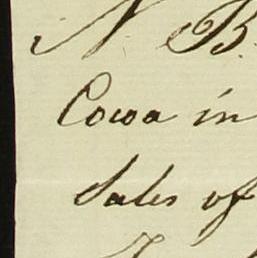 N B
Cocoa in
Sales of